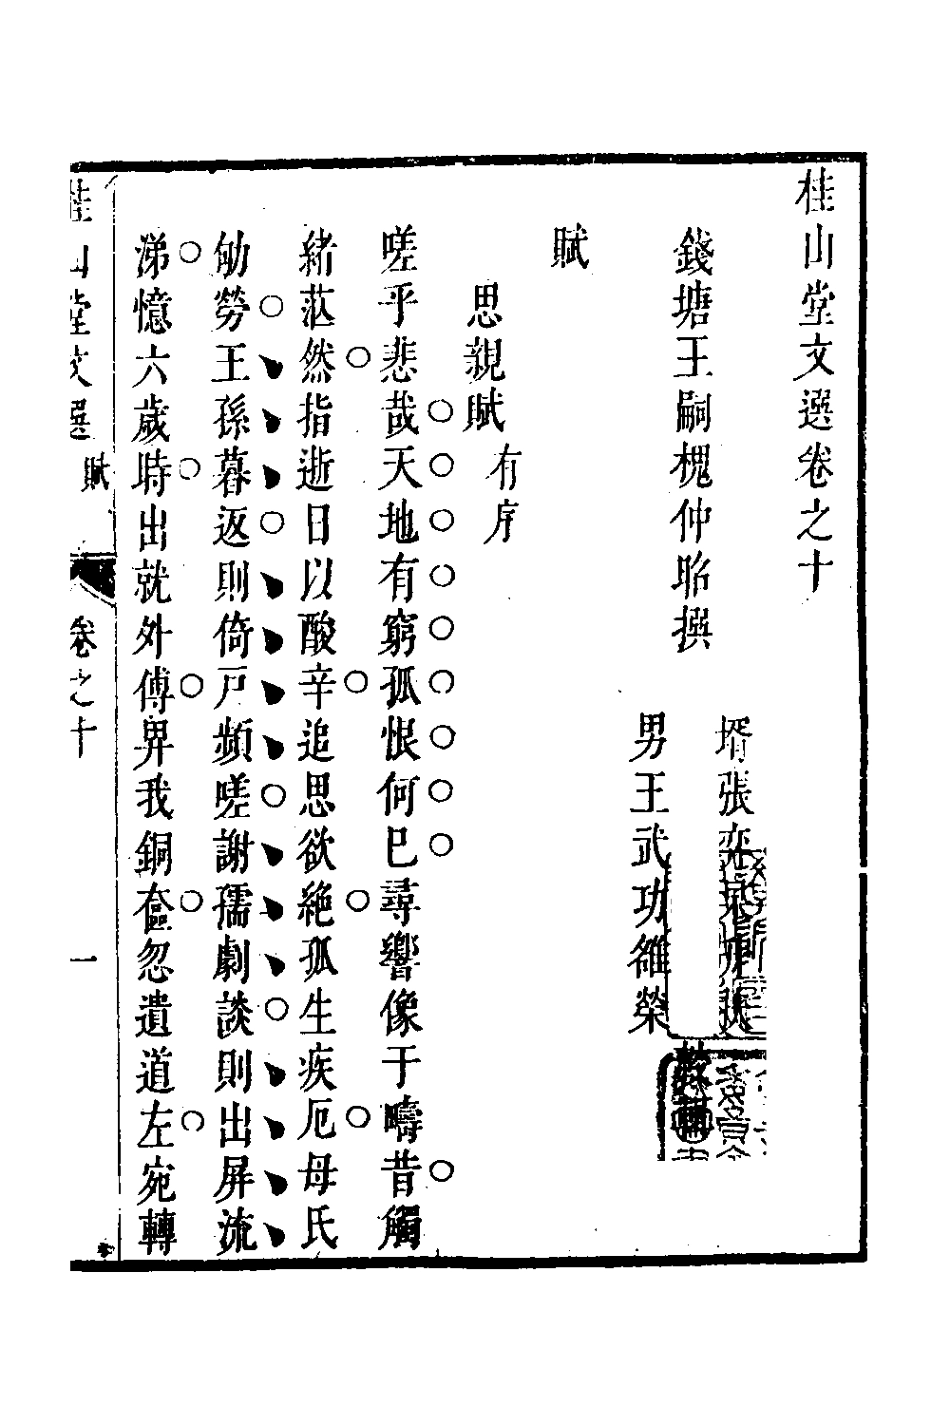 桂山堂文選卷之十
錢塘王嗣槐仲昭撰
壻張奕
男王武功維榮
賦
思親賦有序
嗟乎悲哉天地有窮孤恨何已尋響像于疇昔觸
緒茫然指逝日以酸辛追思欲絶孤生疾厄母氏
劬勞王孫暮返則倚戸頻嗟謝孺劇談則出屏流
涕憶六歲時出就外傅畀我銅奩忽遺道左宛轉
桂山堂文選 賦 卷之十 一